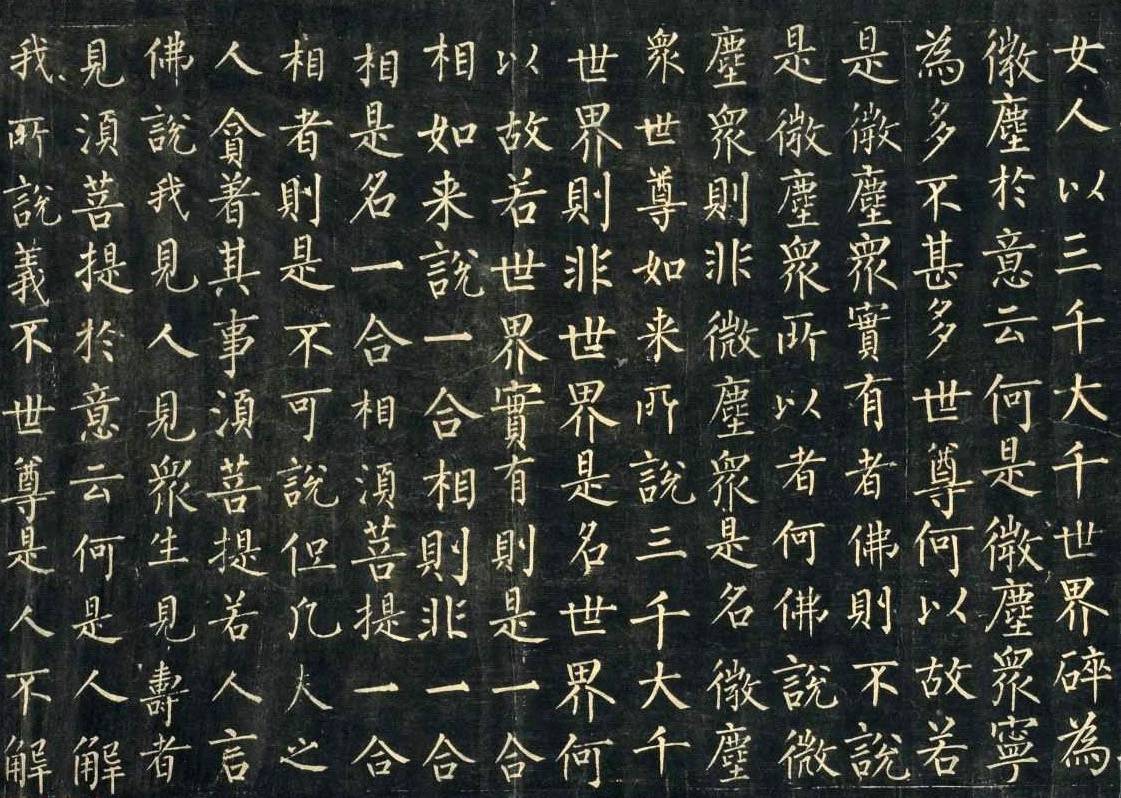 女人以三千大千世界碎為
微塵於意云何是微塵衆寧
為多不甚多世尊何以故若
是微塵衆實有者佛則不說
是微塵衆所以者何佛說微
塵衆則非微塵衆是名微塵
衆世尊如来所說三千大千
世界則非世界是名世界何
以故若世界實有則是一合
相如来說一合相則非一合
相是名一合相湏菩提一合
相者則是不可說但凡夫之
人貪著其事湏菩提若人言
佛說我見人見衆生見壽者
見湏菩提於意云何是人解
我所說義不世尊是人不解